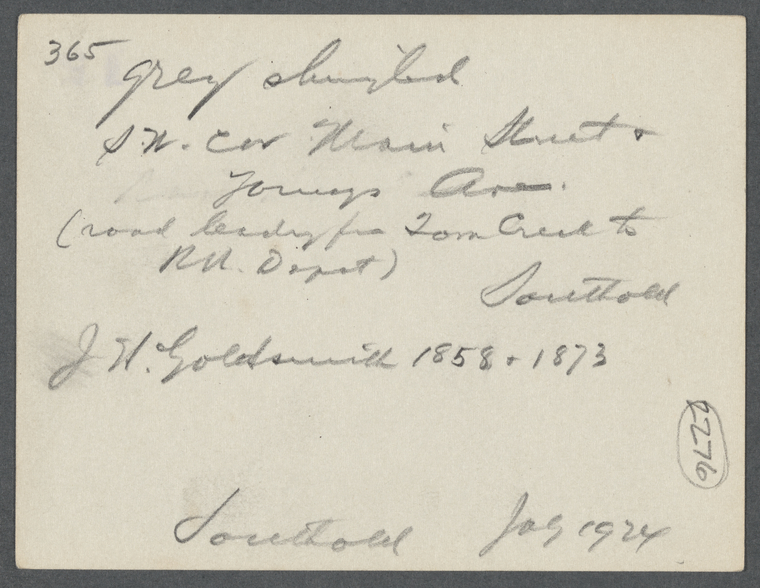 365
Grey shingled
S.W. cor Main Street &
Youngs Ave.
(road leading fr Town Creek to
RR. Depot)
Southold
J H. Goldsmith 1858 & 1873
2276
Southold July 1924